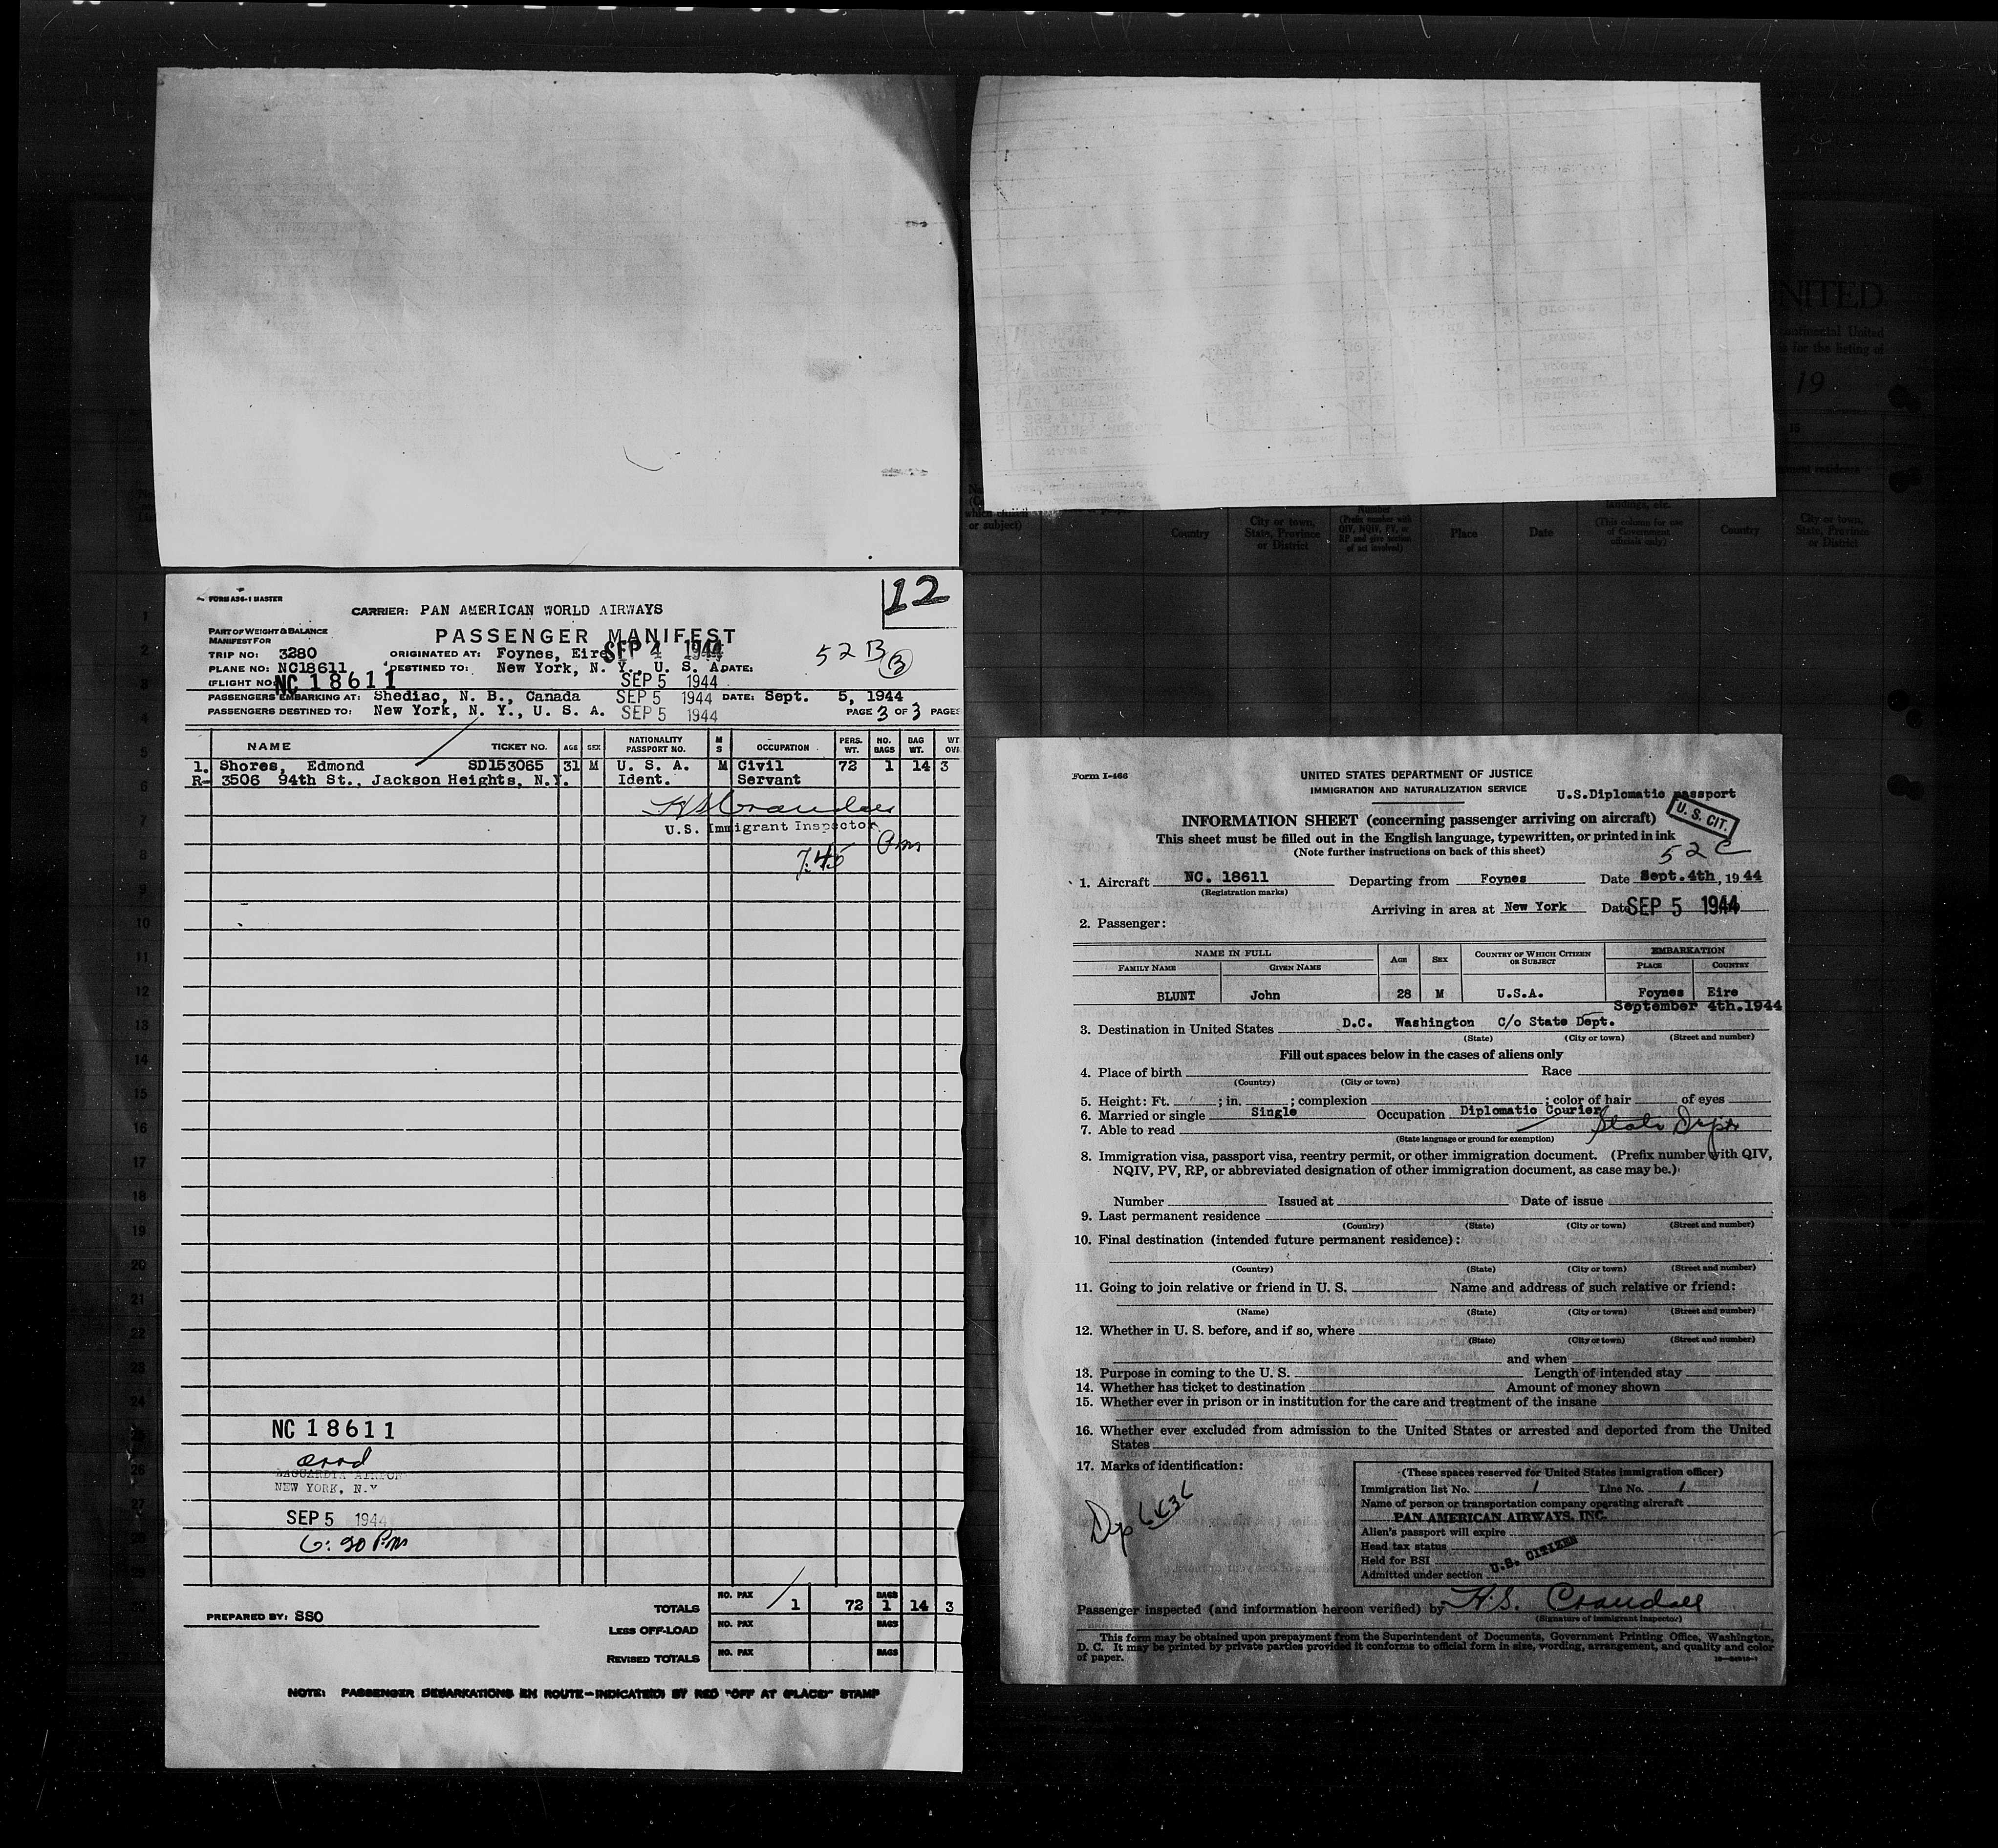 FORM A26-1 MASTER
12
CARRIER: PAN AMERICAN WORLD AIRWAYS
PART OF WEIGHT & BALANCE
MANIFEST FOR
PASSENGER MANIFEST
TRIP NO: 3280 ORIGINATED AT: Foynes, Eire SEP 4 1944
52 B B
PLANE NO: NC18611 DESTINED TO: New York, N. Y., U. S. A DATE:
FLIGHT NO: NC 18611 SEP 5 1944
PASSENGERS EMBARKING AT: Shediac, N. B., Canada SEP 5 1944 DATE: Sept. 5, 1944
PASSENGERS DESTINED TO: New York, N. Y., U. S. A. SEP 5 1944 PAGE 3 OF 3 PAGES
NAME TICKET NO. AGE SEX NATIONALITY PASSPORT NO. M S OCCUPATION PERS. WT. NO. BAGS BAG WT. WT. OVR
1. Shores, Edmond SD153065 31 M U. S. A. M Civil 72 1 14 3
R- 3506 94th St., Jackson Heights, N.Y. Ident. Servant
H S Crandall
U.S. Immigrant Inspector
7.45 Pm
NC 18611
arrd
LAGUARDIA AIRPORT
NEW YORK, N.Y
SEP 5 1944
6:20 Pm
TOTALS NO. PAX 1 72 BAGS 1 14 3
PREPARED BY: SSO
LESS OFF-LOAD NO. PAX BAGS
REVISED TOTALS NO. PAX BAGS
NOTE: PASSENGER DEBARKATIONS EN ROUTE-INDICATED BY RED "OFF AT (PLACE)" STAMP
NITED
continental United
is for the listing of
19
which citizen
or subject)
Country
City or town,
State, Province
or District
Number
(Prefix number with
QIV, NQIV, PV, or
RP and give section
of act involved)
Place
Date
(This column for use
of Government
officials only)
Country
City or town,
State, Province
or District
1
2
3
4
5
6
7
8
9
10
11
12
13
14
15
16
17
18
19
20
21
22
23
24
26
27
28
Form I-466
UNITED STATES DEPARTMENT OF JUSTICE
IMMIGRATION AND NATURALIZATION SERVICE
U.S.Diplomatic passport
U. S. CIT.
INFORMATION SHEET (concerning passenger arriving on aircraft)
This sheet must be filled out in the English language, typewritten, or printed in ink
(Note further instructions on back of this sheet)
52 C
1. Aircraft NC. 18611 Departing from Foynes Date Sept.4th, 1944
(Registration marks)
Arriving in area at New York Date SEP 5 1944
2. Passenger:
NAME IN FULL AGE SEX COUNTRY OF WHICH CITIZEN OR SUBJECT EMBARKATION
FAMILY NAME GIVEN NAME PLACE COUNTRY
BLUNT John 28 M U.S.A. Foynes Eire
September 4th.1944
3. Destination in United States D.C. Washington C/o State Dept.
(State) (City or town) (Street and number)
Fill out spaces below in the cases of aliens only
4. Place of birth Race
(Country) (City or town)
5. Height: Ft. ; in. ; complexion ; color of hair of eyes
6. Married or single Single Occupation Diplomatic Courier
State Dept
7. Able to read
(State language or ground for exemption)
8. Immigration visa, passport visa, reentry permit, or other immigration document. (Prefix number with QIV,
NQIV, PV, RP, or abbreviated designation of other immigration document, as case may be.)
Number Issued at Date of issue
9. Last permanent residence
(Country) (State) (City or town) (Street and number)
10. Final destination (intended future permanent residence):
(Country) (State) (City or town) (Street and number)
11. Going to join relative or friend in U. S. Name and address of such relative or friend:
(Name) (State) (City or town) (Street and number)
12. Whether in U. S. before, and if so, where
(State) (City or town) (Street and number)
and when
13. Purpose in coming to the U. S. Length of intended stay
14. Whether has ticket to destination Amount of money shown
15. Whether ever in prison or in institution for the care and treatment of the insane
16. Whether ever excluded from admission to the United States or arrested and deported from the United
States
17. Marks of identification:
(These spaces reserved for United States immigration officer)
Immigration list No. 1 Line No. 1
Name of person or transportation company operating aircraft
PAN AMERICAN AIRWAYS, INC.
Alien's passport will expire
Head tax status
Held for BSI
U.S. CITIZEN
Admitted under section
Passenger inspected (and information hereon verified) by H.S. Crandall
(Signature of immigrant inspector)
This form may be obtained upon prepayment from the Superintendent of Documents, Government Printing Office, Washington,
D. C. It may be printed by private parties provided it conforms to official form in size, wording, arrangement, and quality and color
of paper.